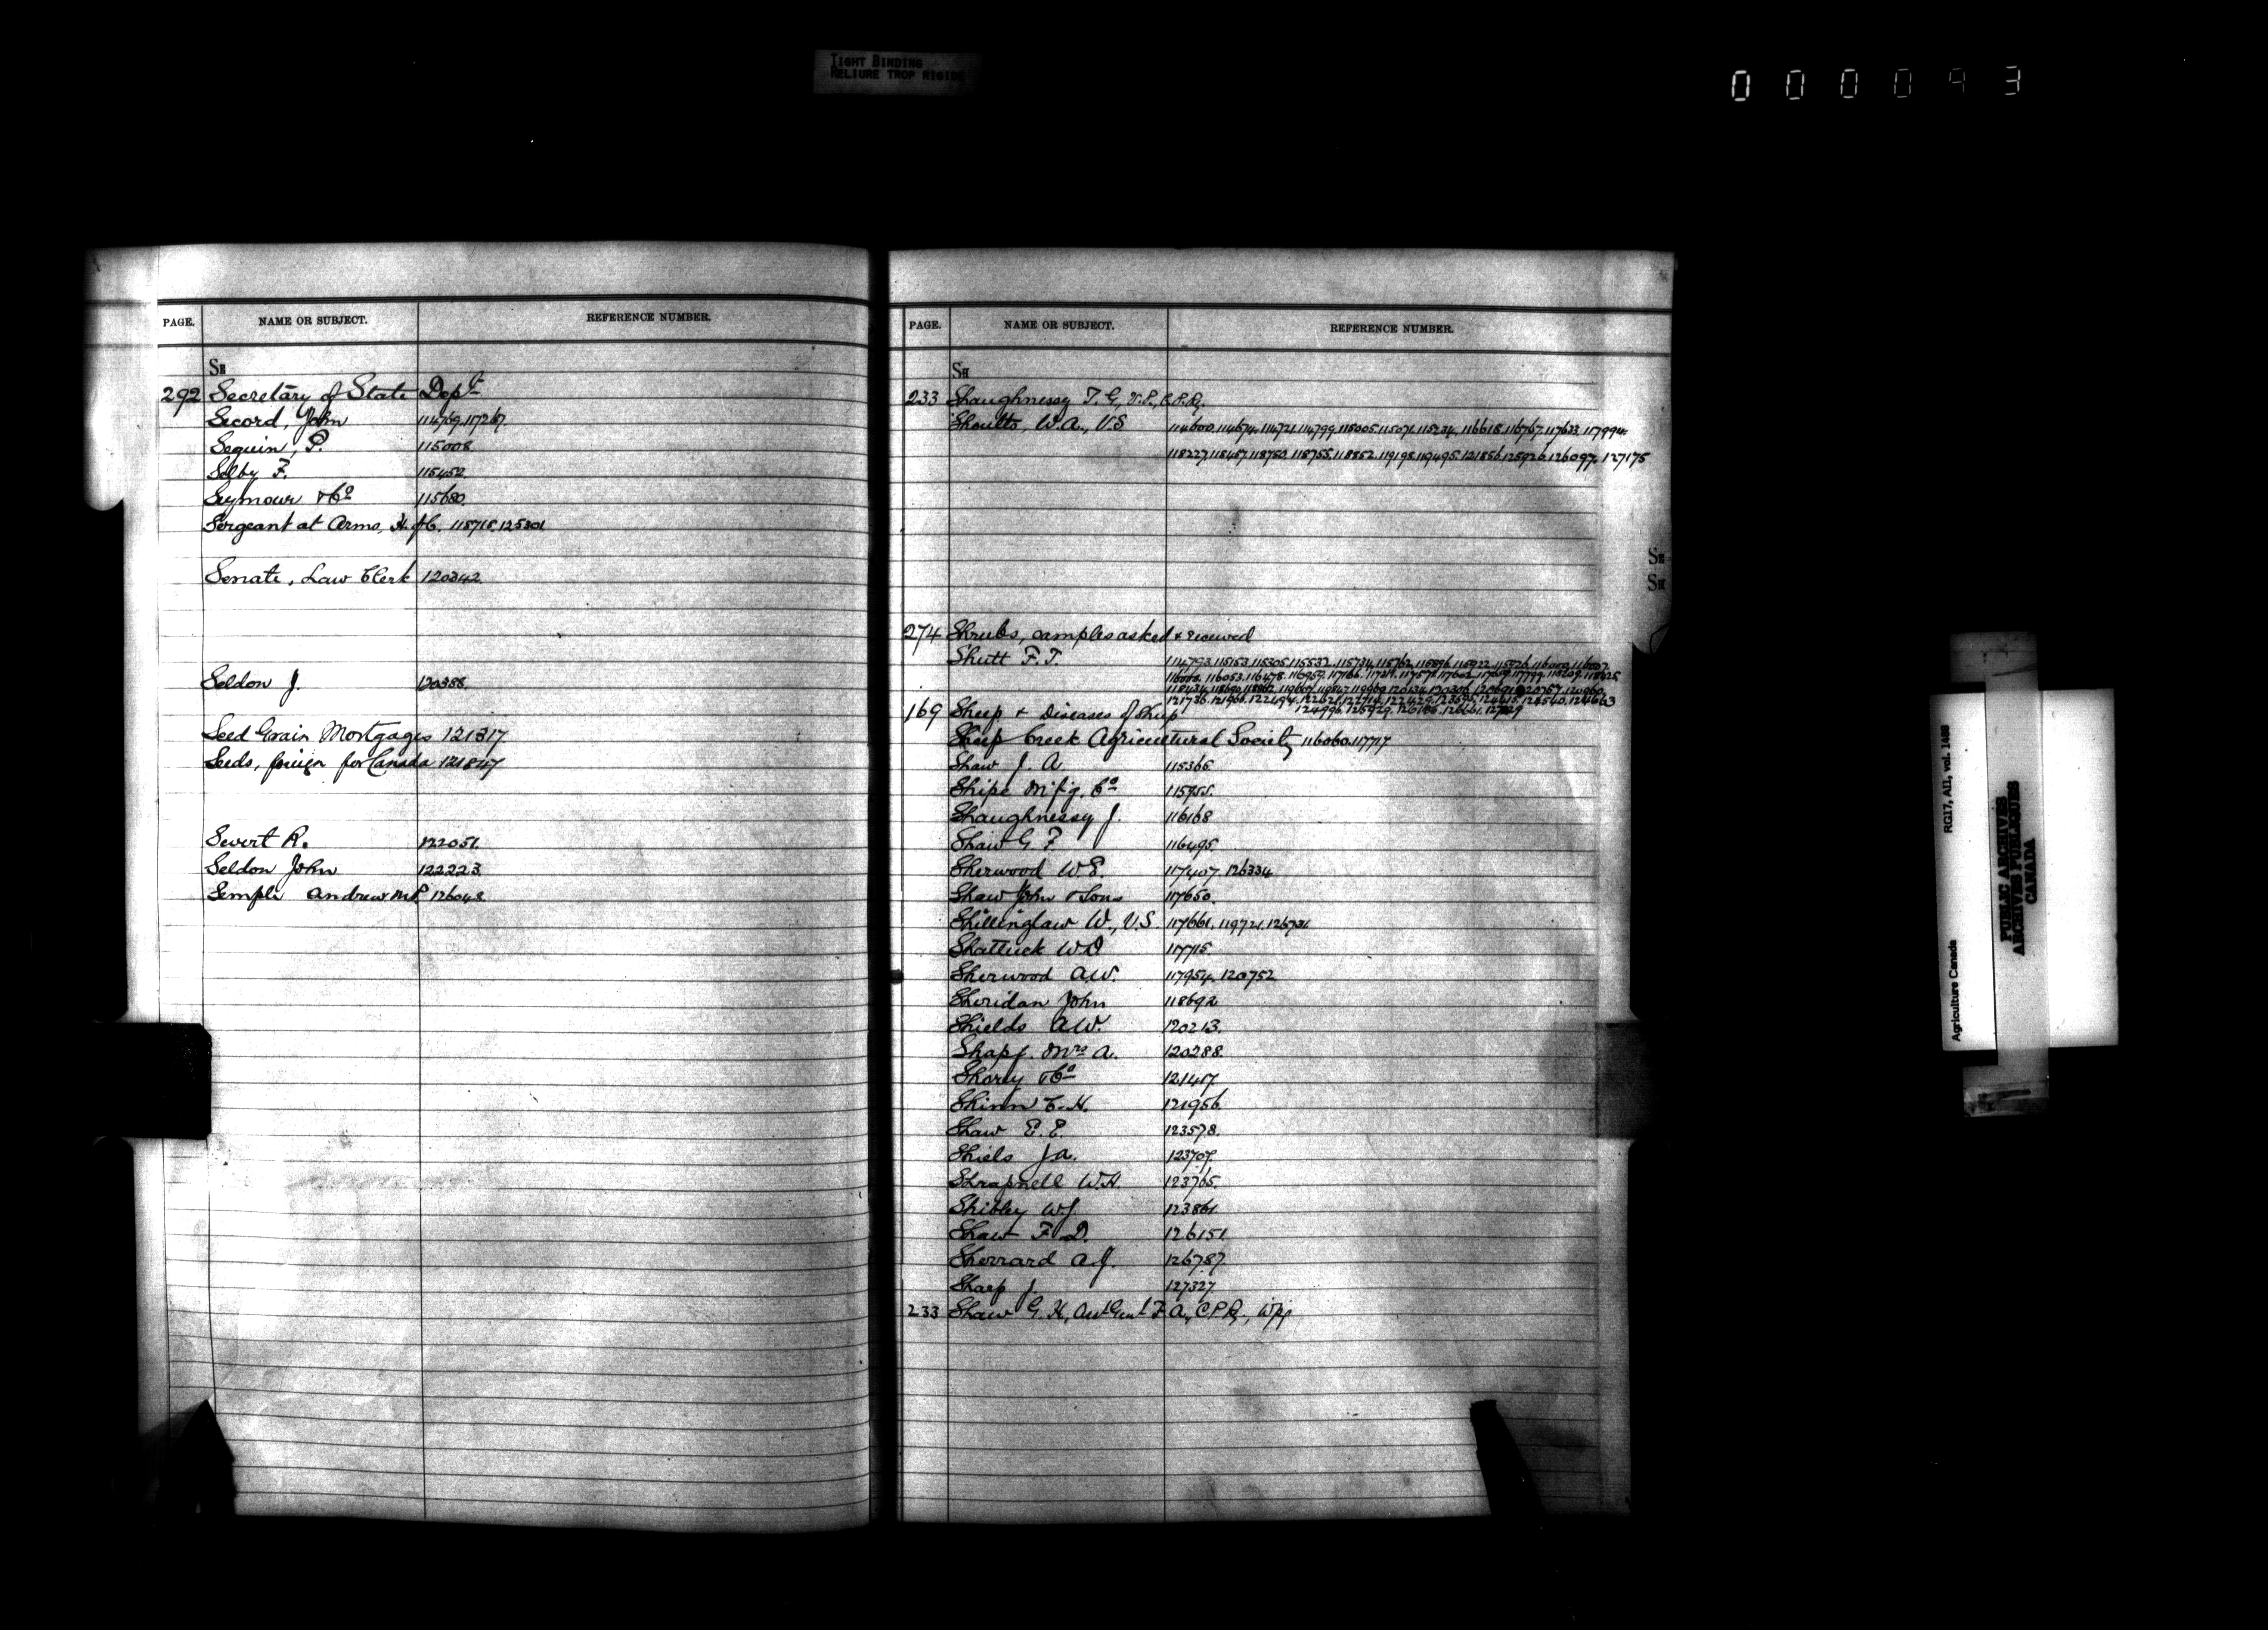 TIGHT BINDING
RELIURE TROP RIGIDE
000093
PAGE. NAME OR SUBJECT. REFERENCE NUMBER.
SE
292 Secretary of State Dept
Secord, John 114769.117267.
Seguin, P. 115008.
Selby F. 115452.
Seymour & Co 115680.
Sergeant at Arms, H. of C. 118718.125301
Senate, Law Clerk 120342.
Seldon J. 120388.
Seed Grain Mortgages 121317.
Seeds, foreign for Canada 121847
Sewert R. 122051.
Seldon John 122223.
Semple Andrew M.P. 126048.
PAGE. NAME OR SUBJECT. REFERENCE NUMBER.
SH
233 Shaughnessy T. G., V.P., C.P.R.
Shoults, W.A., V.S 114600.114674.114721.114799.115005.115071.115234.116618.116767.117633.117994.
118227.118487.118750.118755.118852.119198.119495.121856.125926.126097.127175
274 Shrubs, samples asked & received
Shutt F.T. 114793.115153.115305.115532.115734.115762.115896.115922.115926.116000.116007.
169 Sheep & Diseases of Sheep
Sheep Creek Agricultural Society 116060.117717
Shaw J. A. 115365.
Shipe M'f'g. Co 115955.
Shaughnessy J. 116168
Shaw G. F. 116495.
Sherwood W.E. 117407.126334.
Shaw John & Sons 117650.
Shillinglaw W., V.S. 117661.119721.126731.
Shattuck W.D 117715.
Sherwood A.W. 117954.120752.
Sheridan John 118692
Shields A.W. 120213.
Shapf. Mrs A. 120288.
Shorey & Co 121457.
Shinn C. H. 121956.
Shaw E. E. 123578.
Shiels J.A. 123707.
Shrapnell W.H. 123765.
Shibley W.J. 123861.
Shaw F. D. 126151.
Sherrard A.J. 126787.
Sharp J. 127327.
233 Shaw G. H., Asst Genl F. A., C.P.R., Wpg
SE
SH
Agriculture Canada RG17, AII, vol. 1488
PUBLIC ARCHIVES
ARCHIVES PUBLIQUES
CANADA